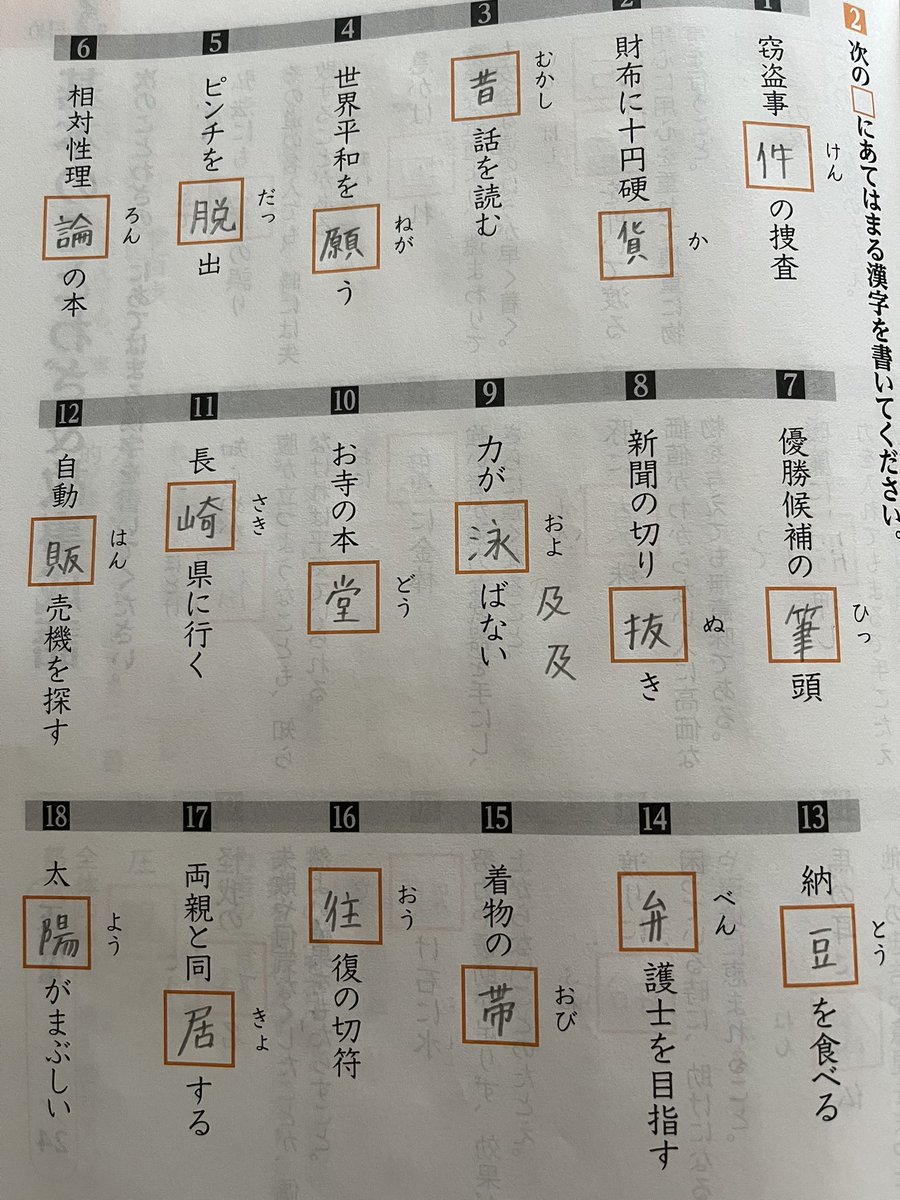 2 次の□にあてはまる漢字を書いてください。
1 窃盗事件の捜査
けん
2 財布に十円硬貨
か
3 昔話を読む
むかし
4 世界平和を願う
ねが
5 ピンチを脱出
だっ
6 相対性理論の本
ろん
7 優勝候補の筆頭
ひっ
8 新聞の切り抜き
ぬ
9 力が泳ばない
およ
及
及
10 お寺の本堂
どう
11 長崎県に行く
さき
12 自動販売機を探す
はん
13 納豆を食べる
とう
14 弁護士を目指す
べん
15 着物の帯
おび
16 往復の切符
おう
17 両親と同居する
きょ
18 太陽がまぶしい
よう